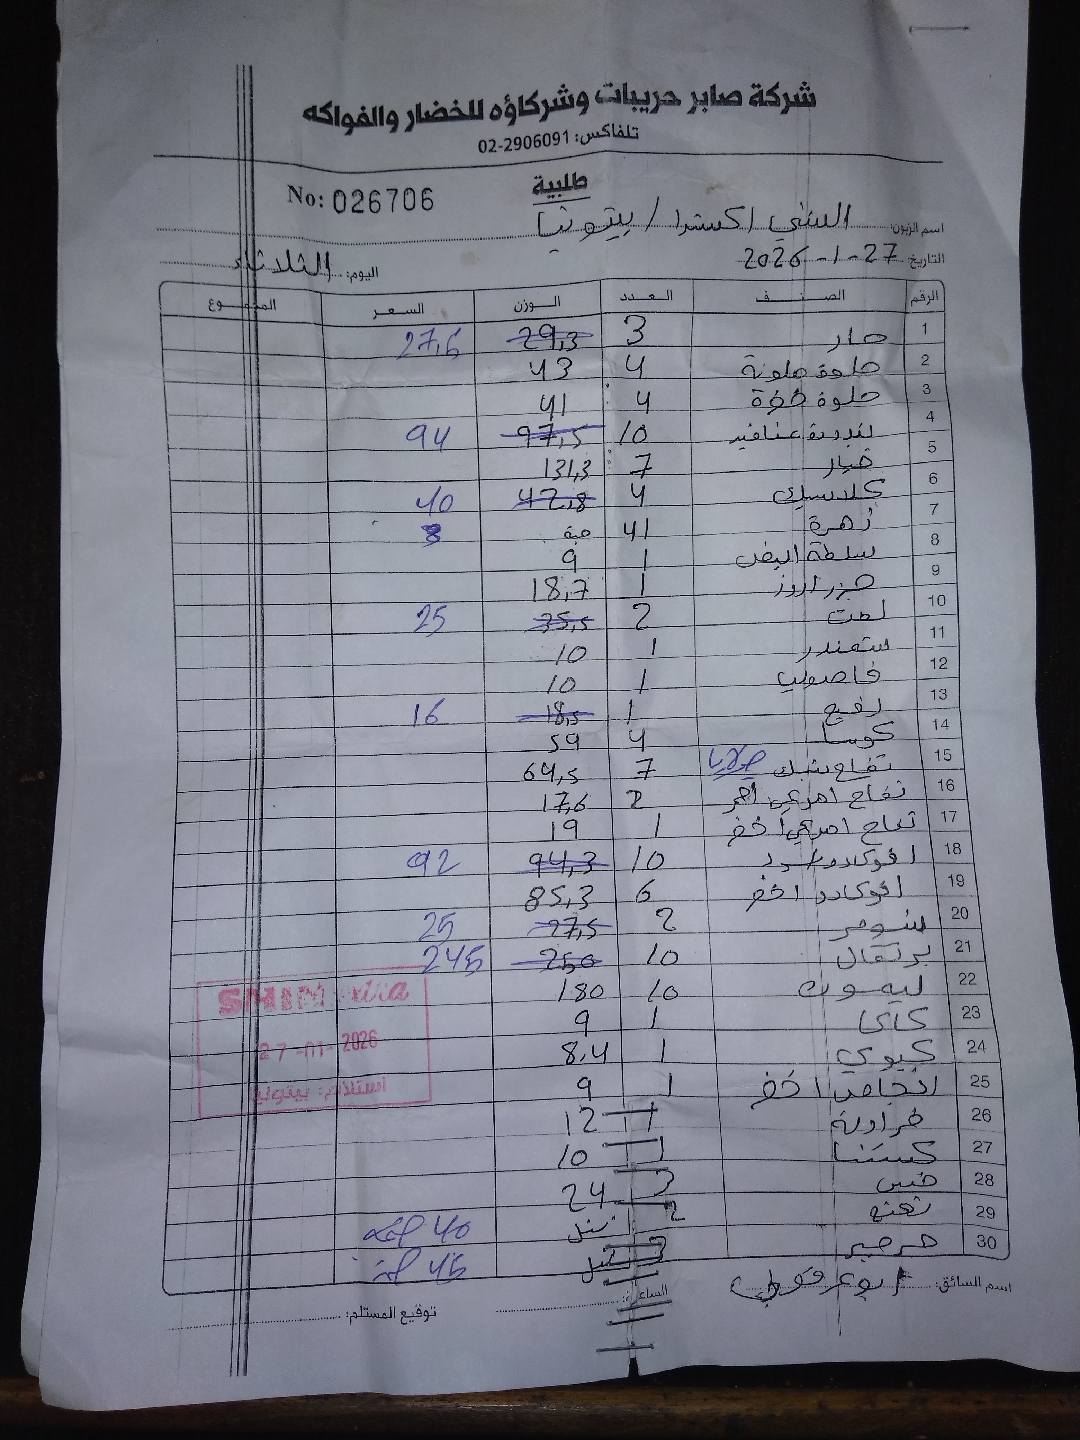 شركة صابر حريبات وشركاؤه للخضار والفواكه
تلفاكس: 02-2906091
طلبية
No: 026706
اسم الزبون: السني اكسترا / بيتونيا
التاريخ: 27-1-2026 اليوم: الثلاثاء
الرقم الصنف العدد الوزن السعر المجموع
1 حار 3 29,3 27,6
2 حلوة ملونة 4 43
3 حلوة 4 41
4 بندورة عناقيد 10 97,5 94
5 خيار 7 131,3
6 كلاسيك 4 42,8 40
7 زهرة 41 حبة 8
8 سلطة ابيض 1 9
9 جزر 1 18,7
10 لفت 2 35,5 25
11 شمندر 1 10
12 فاصوليا 1 10
13 1 18,5 16
14 كوسا 4 59
15 تفاح 7 64,5
16 تفاح احمر 2 17,6
17 تفاح اخضر 1 19
18 افوكادو اسود 10 94,3 92
19 افوكادو اخضر 6 85,3
20 بوملي 2 27,5 25
21 برتقال 10 250 245
22 ليمون 10 180
23 كاكا 1 9
24 كيوي 1 8,4
25 اخضر 1 9
26 فراولة 1 12
27 كستنا 1 10
28 خس 3 24
29 نعنع 2 40
30 جرجير 3 45
SHINI Extra
27-01-2026
استلام: بيتونيا
اسم السائق: ابو عرقوب
الساعة:
توقيع المستلم: